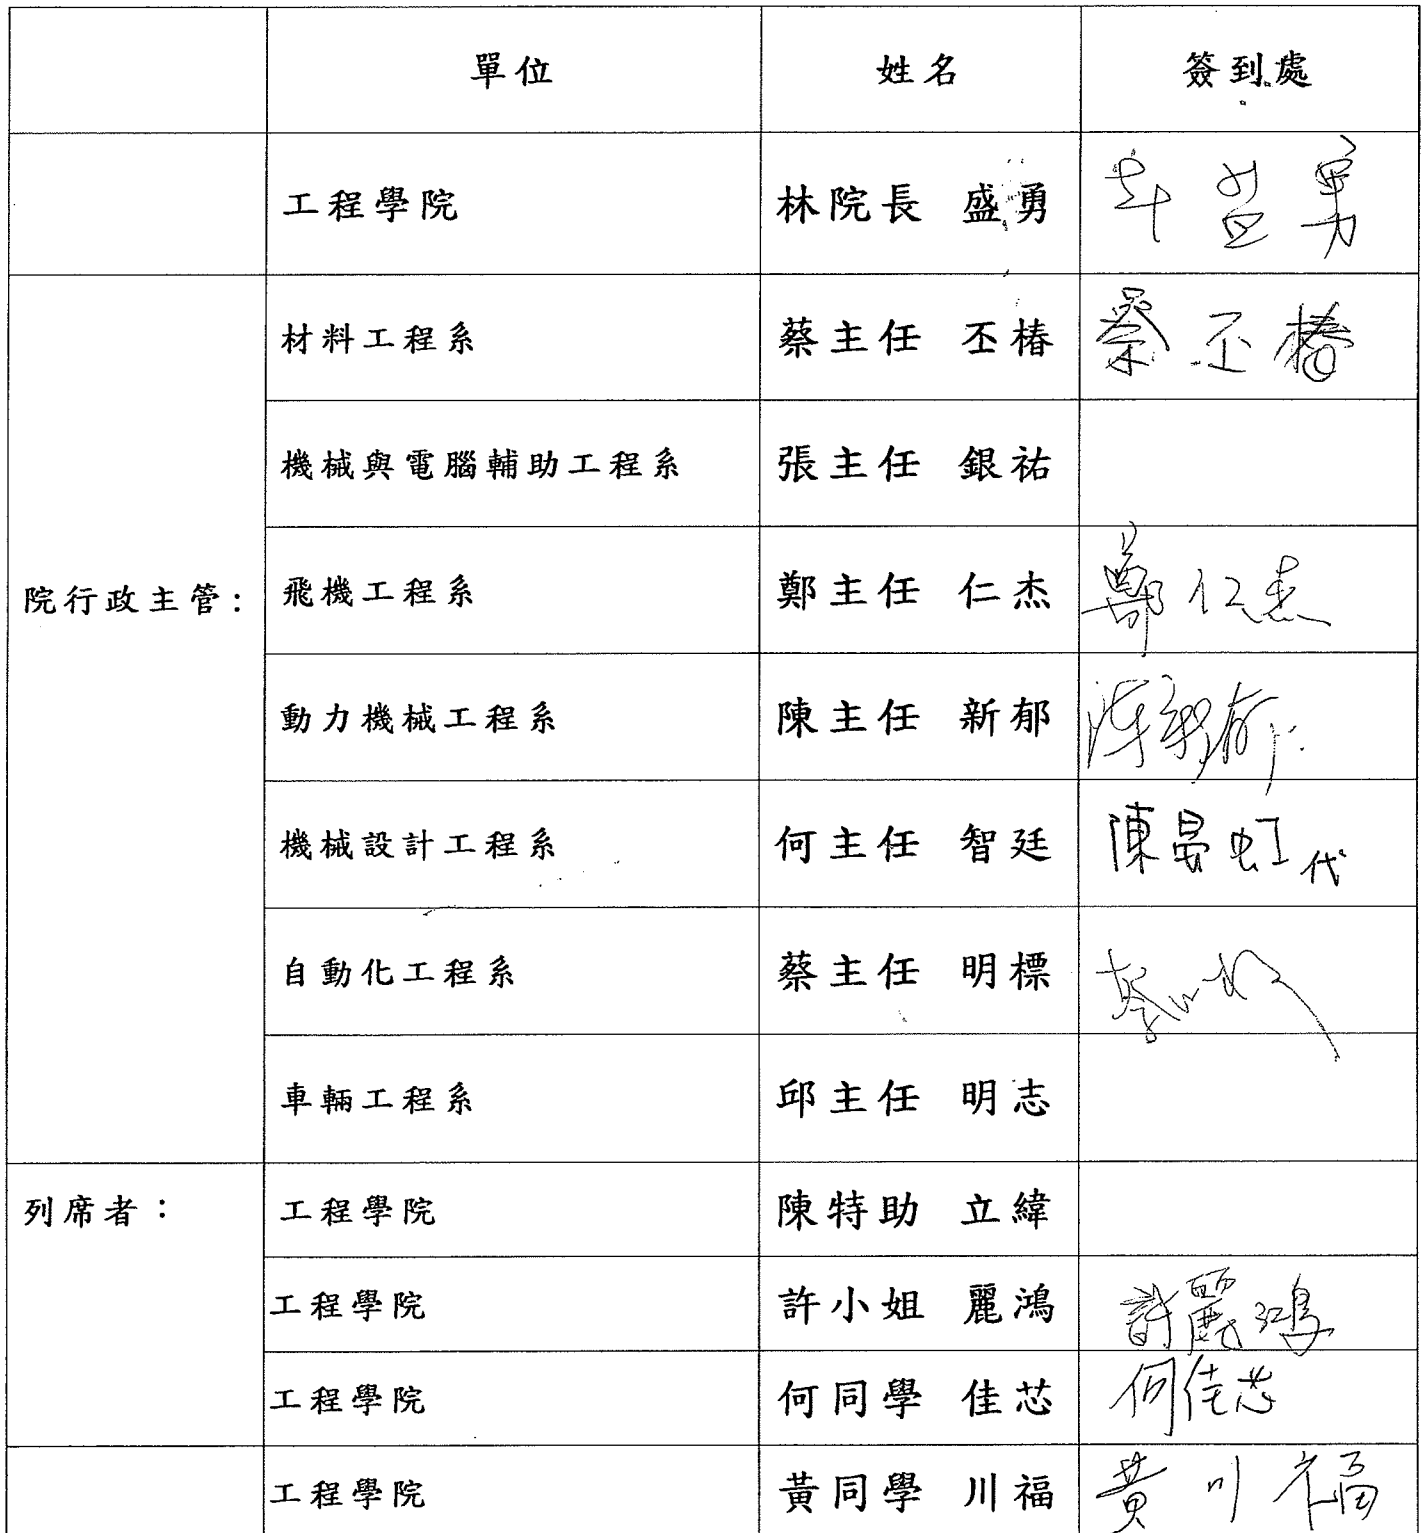 單位 姓名 簽到處
工程學院 林院長 盛勇
材料工程系 蔡主任 丕椿 蔡丕椿
機械與電腦輔助工程系 張主任 銀祐
院行政主管: 飛機工程系 鄭主任 仁杰 鄭仁杰
動力機械工程系 陳主任 新郁 陳新郁
機械設計工程系 何主任 智廷 陳晏虹代
自動化工程系 蔡主任 明標
車輛工程系 邱主任 明志
列席者： 工程學院 陳特助 立緯
工程學院 許小姐 麗鴻 許麗鴻
工程學院 何同學 佳芯 何佳芯
工程學院 黃同學 川福 黃川福